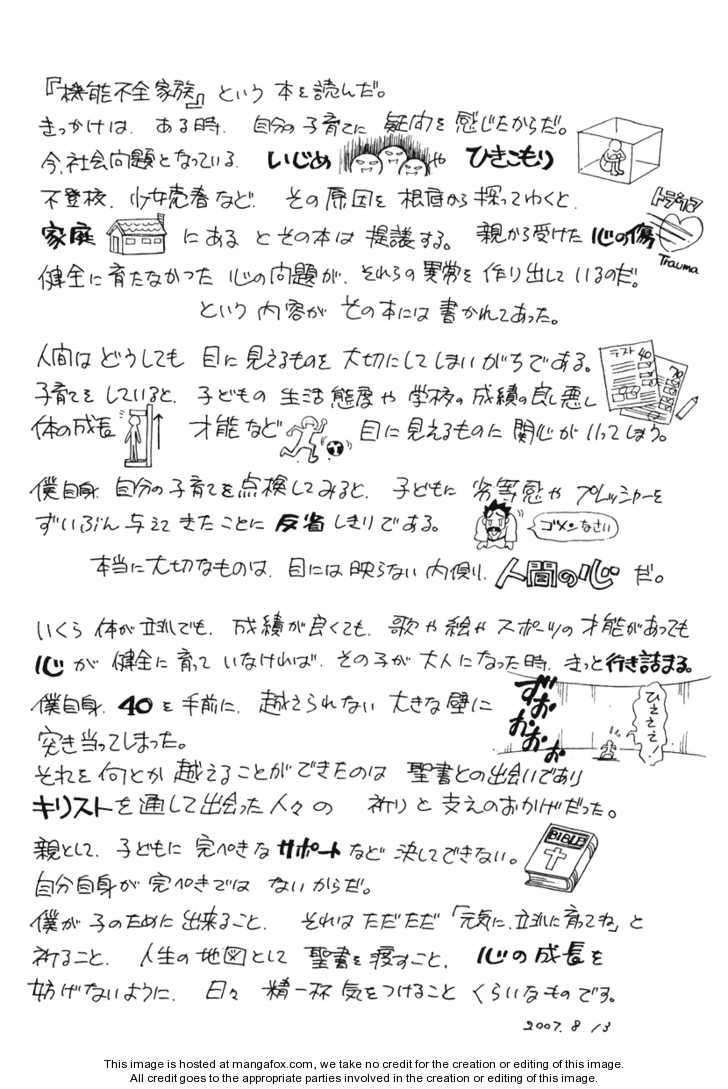 『機能不全家族』という本を読んだ。
きっかけは、ある時、自分の子育てに疑問を感じたからだ。
今、社会問題となっている、いじめやひきこもり
不登校、少女売春など、その原因を根底から探ってゆくと、
トラウマ
家庭にあるとその本は提議する。親から受けた心の傷
Trauma
健全に育たなかった心の問題が、それらの異常を作り出しているのだ。
という内容がその本には書かれてあった。
人間はどうしても目に見えるものを大切にしてしまいがちである。
テスト 40
70
子育てをしていると、子どもの生活態度や学校の成績の良し悪し
体の成長 才能など 目に見えるものに関心がいってしまう。
僕自身、自分の子育てを点検してみると、子どもに劣等感やプレッシャーを
ずいぶん与えてきたことに反省しきりである。
ゴメンなさい
本当に大切なものは、目には映らない内側、人間の心だ。
いくら体が立派でも、成績が良くても、歌や絵やスポーツの才能があっても
心が健全に育っていなければ、その子が大人になった時、きっと行き詰まる。
ずおおおおお
ひえええ!
僕自身、40を手前に、越えられない大きな壁に
突き当ってしまった。
それを何とか越えることができたのは聖書との出会いであり
キリストを通して出会った人々の祈りと支えのおかげだった。
BIBLE
親として、子どもに完ぺきなサポートなど決してできない。
自分自身が完ぺきではないからだ。
僕が子のために出来ること、それはただただ「元気に、立派に育ってね」と
祈ること、人生の地図として聖書を渡すこと、心の成長を
妨げないように、日々精一杯気をつけることくらいなものです。
2007. 8 13
This image is hosted at mangafox.com, we take no credit for the creation or editing of this image.
All credit goes to the appropriate parties involved in the creation or editing of this image.